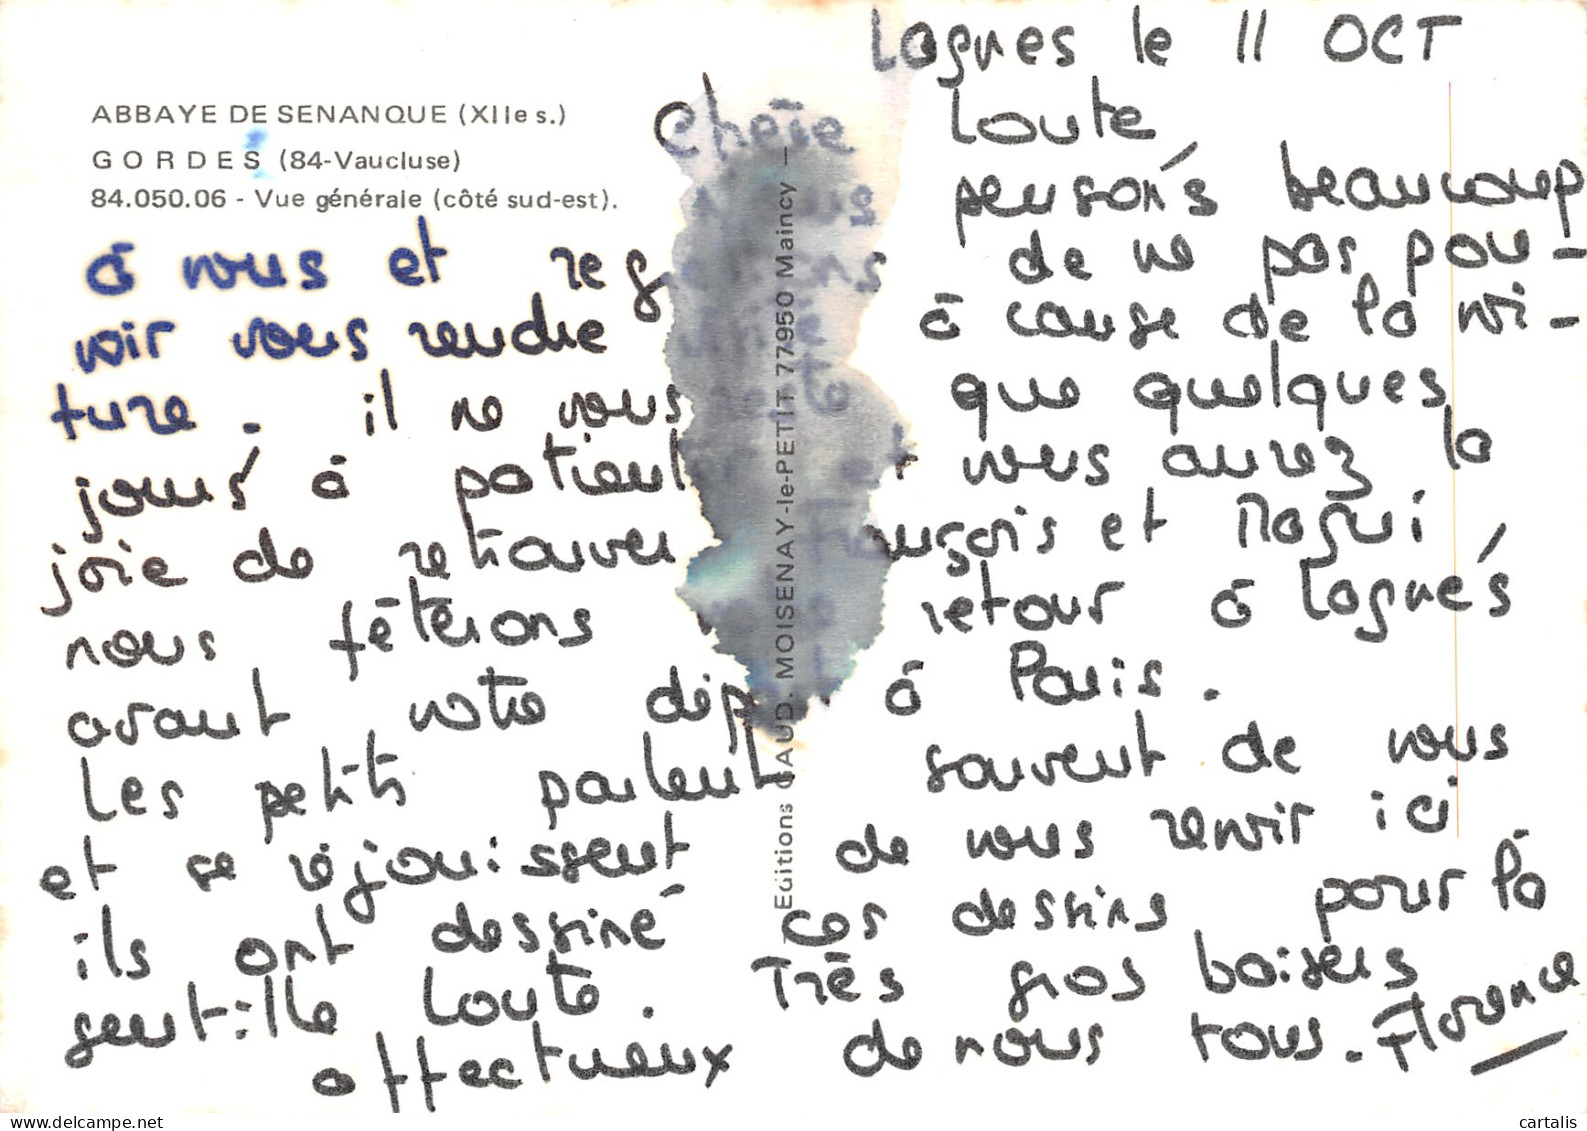 Lagnes le 11 OCT
ABBAYE DE SENANQUE (XIIe s.)
GORDES (84-Vaucluse)
84.050.06 - Vue générale (côté sud-est).
Editions GAUD. MOISENAY-le-PETIT 77950 Maincy
Chère Loute,
pensons beaucoup
à vous et de ne pas pou-
voir vous rendre à cause de la voi-
ture. il ne vous que quelques
jours à vous aurez la
joie de retrouver et Magui
nous fêterons retour à Lagnes
avant votre à Paris.
Les petits parlent souvent de vous
et se réjouissent de vous revoir ici
ils ont dessiné ces dessins pour la
gentille Loute. Très gros baisers
affectueux de nous tous. Florence
cartalis
delcampe.net